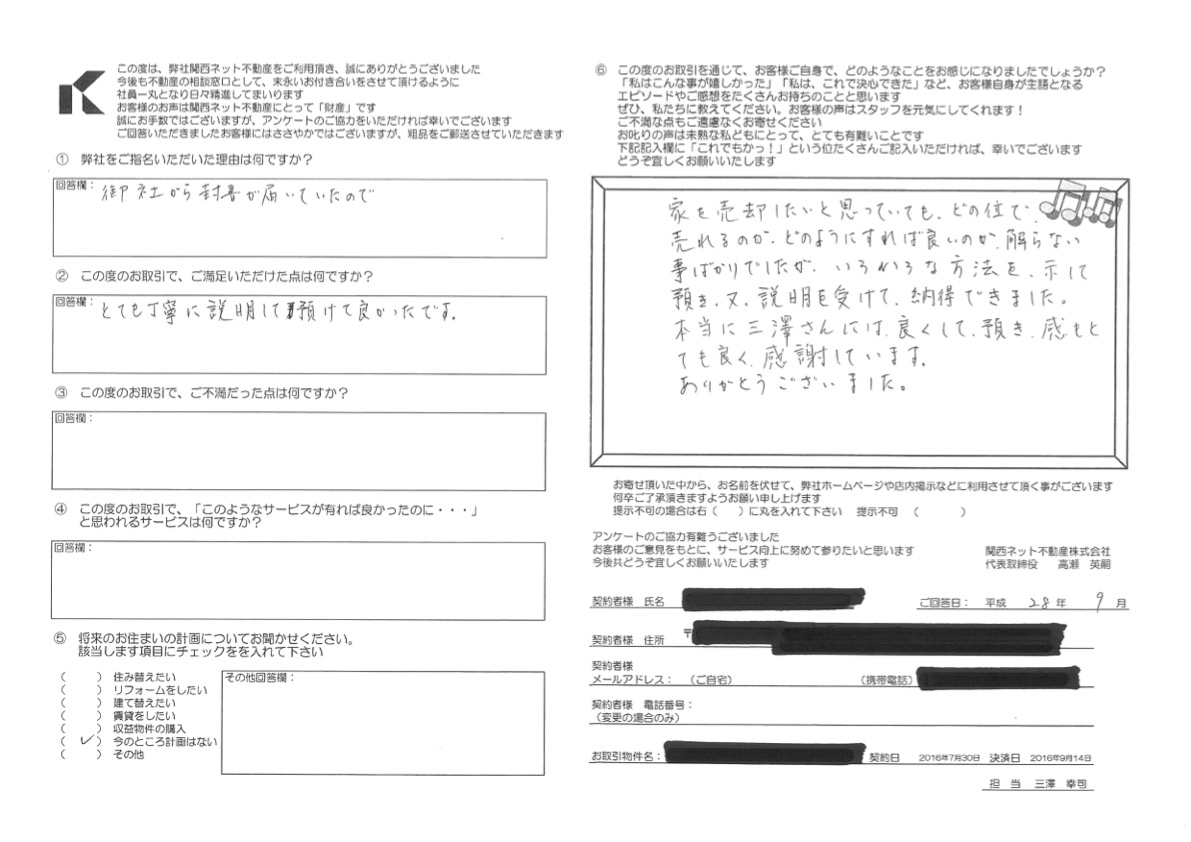 この度は、弊社関西ネット不動産をご利用頂き、誠にありがとうございました
今後も不動産の相談窓口として、末永いお付き合いをさせて頂けるように
社員一丸となり日々精進してまいります
お客様のお声は関西ネット不動産にとって「財産」です
誠にお手数ではございますが、アンケートのご協力をいただければ幸いでございます
ご回答いただきましたお客様にはささやかではございますが、粗品をご郵送させていただきます
① 弊社をご指名いただいた理由は何ですか？
回答欄：
御社から封書が届いていたので
② この度のお取引で、ご満足いただけた点は何ですか？
回答欄：
とても丁寧に説明して預けて良かったです。
③ この度のお取引で、ご不満だった点は何ですか？
回答欄：
④ この度のお取引で、「このようなサービスが有れば良かったのに・・・」
と思われるサービスは何ですか？
回答欄：
⑤ 将来のお住まいの計画についてお聞かせください。
該当します項目にチェックをを入れて下さい
（　　） 住み替えたい
（　　） リフォームをしたい
（　　） 建て替えたい
（　　） 賃貸をしたい
（　　） 収益物件の購入
（ ✓ ） 今のところ計画はない
（　　） その他
その他回答欄：
⑥ この度のお取引を通じて、お客様ご自身で、どのようなことをお感じになりましたでしょうか？
「私はこんな事が嬉しかった」「私は、これで決心できた」など、お客様自身が主語となる
エピソードやご感想をたくさんお持ちのことと思います
ぜひ、私たちに教えてください。お客様の声はスタッフを元気にしてくれます！
ご不満な点もご遠慮なくお寄せください
お叱りの声は未熟な私どもにとって、とても有難いことです
下記記入欄に「これでもかっ！」という位たくさんご記入いただければ、幸いでございます
どうぞ宜しくお願いいたします
家を売却したいと思っていても、どの位で、
売れるのか、どのようにすれば良いのか、解らない
事ばかりでしたが、いろいろな方法を、示して
預き、又、説明を受けて、納得できました。
本当に三澤さんには、良くして、預き、感もと
ても良く、感謝しています。
ありがとうございました。
お寄せ頂いた中から、お名前を伏せて、弊社ホームページや店内掲示などに利用させて頂く事がございます
何卒ご了承頂きますようお願い申し上げます
提示不可の場合は右（　　）に丸を入れて下さい　提示不可　（　　　）
アンケートのご協力有難うございました
お客様のご意見をもとに、サービス向上に努めて参りたいと思います
今後共どうぞ宜しくお願いいたします
関西ネット不動産株式会社
代表取締役　高瀬　英嗣
契約者様　氏名
ご回答日：　平成　28 年　9 月
契約者様　住所　〒
契約者様
メールアドレス：　（ご自宅）　（携帯電話）
契約者様　電話番号：
（変更の場合のみ）
お取引物件名：　契約日　2016年7月30日　決済日　2016年9月14日
担　当　三澤　幸司